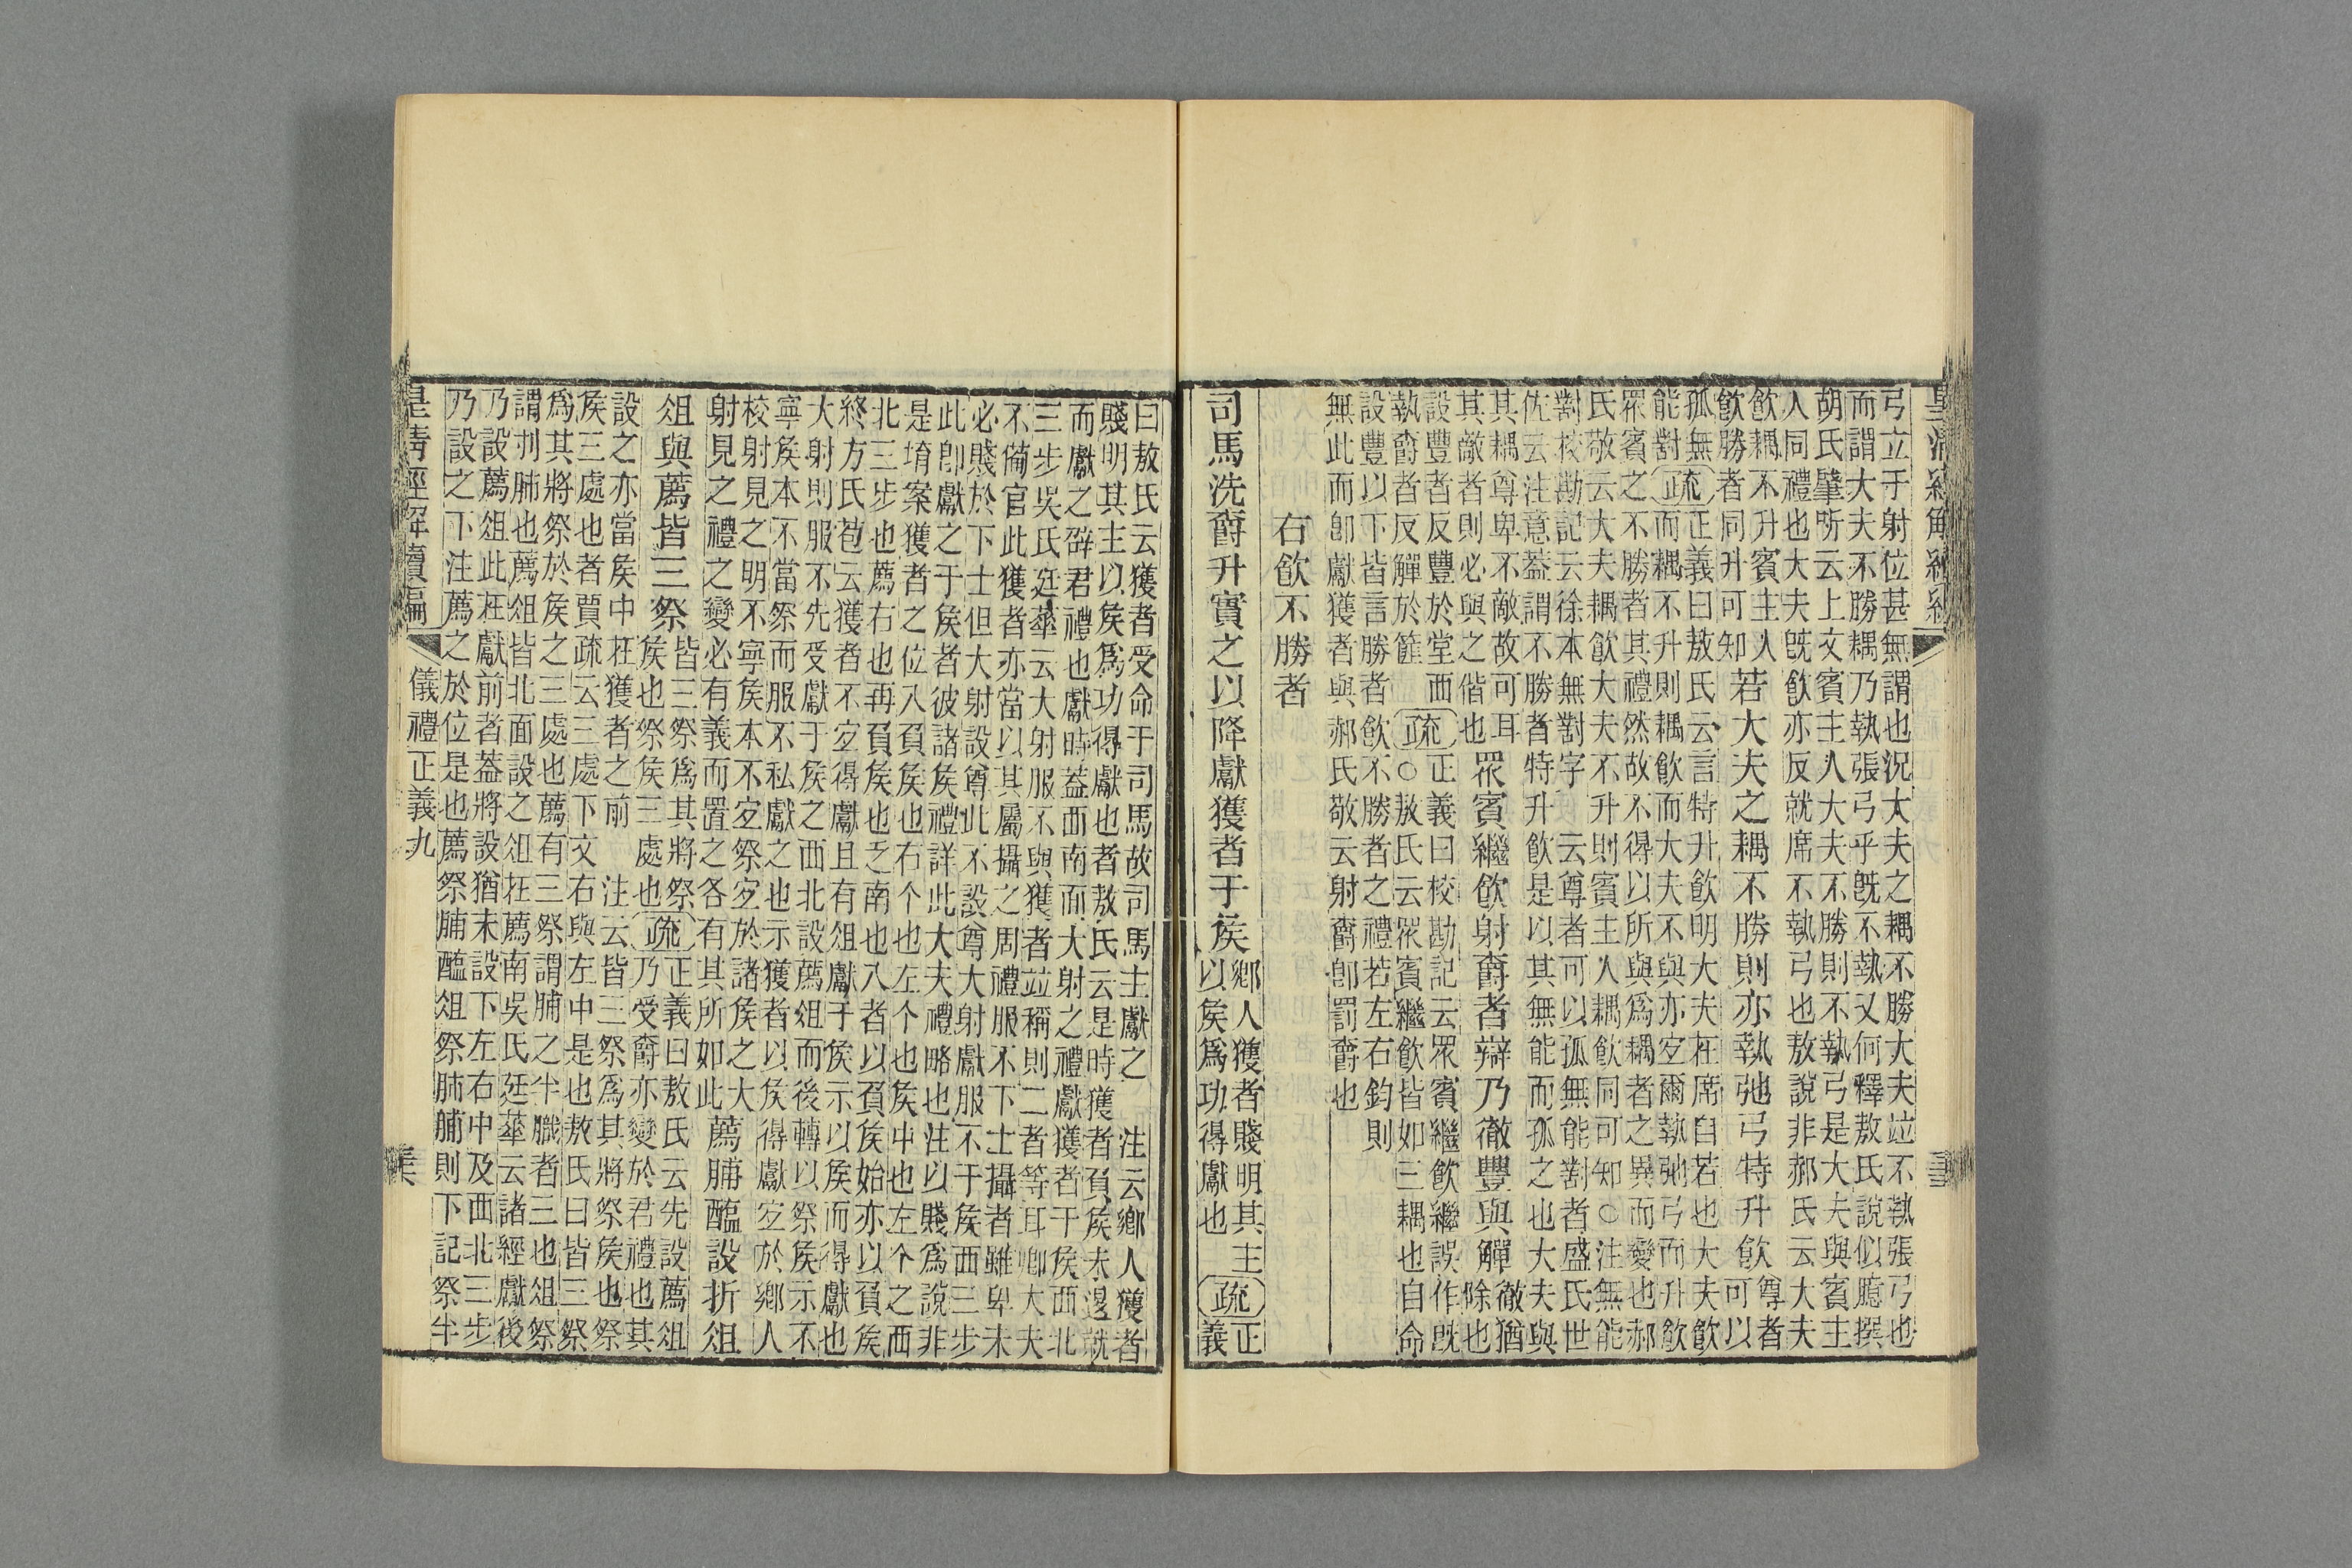 弓立于射位甚無謂也況大夫之耦不勝大夫竝不執張弓也
而謂大夫不勝耦乃執張弓乎旣不執又何釋敖氏說似臆撰
胡氏肇昕云上文賓主人大夫不勝則不執弓是大夫與賓主
人同禮也大夫旣飮亦反就席不執弓也敖說非郝氏云大夫
飮耦不升賓主人
飮勝者同升可知
若大夫之耦不勝則亦執弛弓特升飮
尊者
可以
孤無
能對
疏
正義曰敖氏云言特升飮明大夫在席自若也大夫飮
而耦不升則耦飮而大夫不與亦宐爾執弛弓而升飮
眾賓之不勝者其禮然故不得以所與爲耦者之異而變也郝
氏敬云大夫耦飮大夫不升則賓主人耦飮同可知○注無能
對校勘記云徐本無對字 云尊者可以孤無能對者盛氏世
佐云注意蓋謂不勝者特升飮是以其無能而孤之也大夫與
其耦尊卑不敵故可耳
其敵者則必與之偕也
眾賓繼飮射爵者辯乃徹豐與觶
徹猶
除也
設豐者反豐於堂西
執爵者反觶於篚
疏
正義曰校勘記云眾賓繼飮繼誤作旣
○敖氏云眾賓繼飮皆如三耦也自命
設豐以下皆言勝者飮不勝者之禮若左右鈞則
無此而卽獻獲者與郝氏敬云射爵卽罰爵也
右飮不勝者
司馬洗爵升實之以降獻獲者于侯
鄕人獲者賤明其主
以矦爲功得獻也
疏
正
義
曰敖氏云獲者受命于司馬故司馬主獻之 注云鄕人獲者
賤明其主以矦爲功得獻也者敖氏云是時獲者負矦未退就
而獻之辟君禮也獻時蓋西南面大射之禮獻獲者于矦西北
三步吳氏廷華云大射服不與獲者竝稱則二者等耳卿大夫
不備官此獲者亦當以其屬攝之周禮服不下士攝者雖卑未
必賤於下士但大射設尊此不設尊大射獻服不于矦西三步
此卽獻之于矦者彼諸矦禮詳此大夫禮略也注以賤爲說非
是堉案獲者之位入負矦也右个也左个也矦中也左个之西
北三步也薦右也再負矦也乏南也入者以負矦始亦以負矦
終方氏苞云獲者不宐得獻且有俎獻于矦示以矦而得獻也
大射則服不先受獻于矦之西北設薦俎而後轉以祭矦示不
寧矦本不當祭而服不私獻之也示獲者以矦得獻宐於鄕人
校射見之明不寧矦本不宐祭宐於諸矦之大
射見之禮之變必有義而置之各有其所如此
薦脯醢設折俎
俎與薦皆三祭
皆三祭爲其將祭
矦也祭矦三處也
疏
正義曰敖氏云先設薦俎
乃受爵亦變於君禮也其
設之亦當矦中在獲者之前 注云皆三祭爲其將祭矦也祭
矦三處也者賈疏云三處下文右與左中是也敖氏曰皆三祭
爲其將祭於矦之三處也薦有三祭謂脯之半膱者三也俎祭
謂刌肺也薦俎皆北面設之俎在薦南吳氏廷華云諸經獻後
乃設薦俎此在獻前者蓋將設猶未設下左右中及西北三步
乃設之下注薦之於位是也薦祭脯醢俎祭肺脯則下記祭半
皇淸經解續編
儀禮正義九